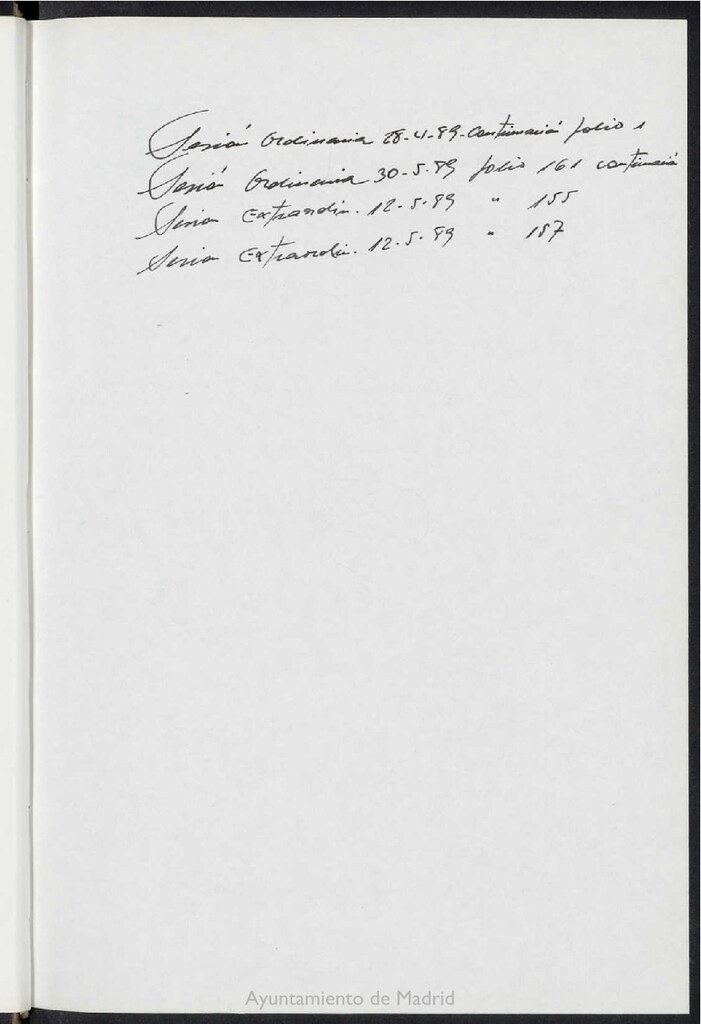 Sesión Ordinaria 28-4-89-continuación folio 1
Sesión Ordinaria 30-5-89 folio 161 continuación
Sesion Extraordin. 12-5-89 " 155
Sesion Extraordin. 12-5-89 " 157
Ayuntamiento de Madrid